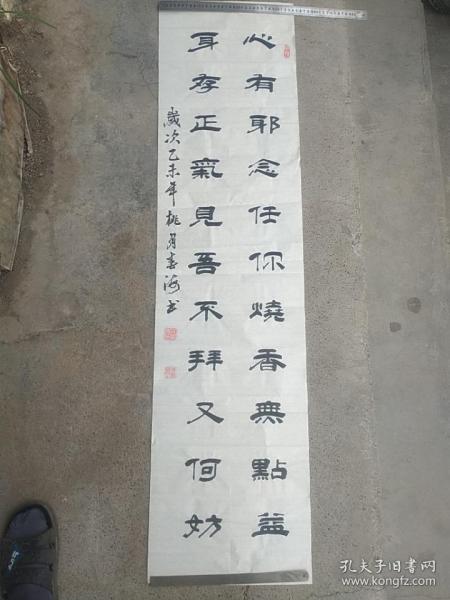 心有邪念任你燒香無點益
耳存正氣見吾不拜又何妨
歲次乙未年桃月春海书
孔夫子旧书网
www.kongfz.com